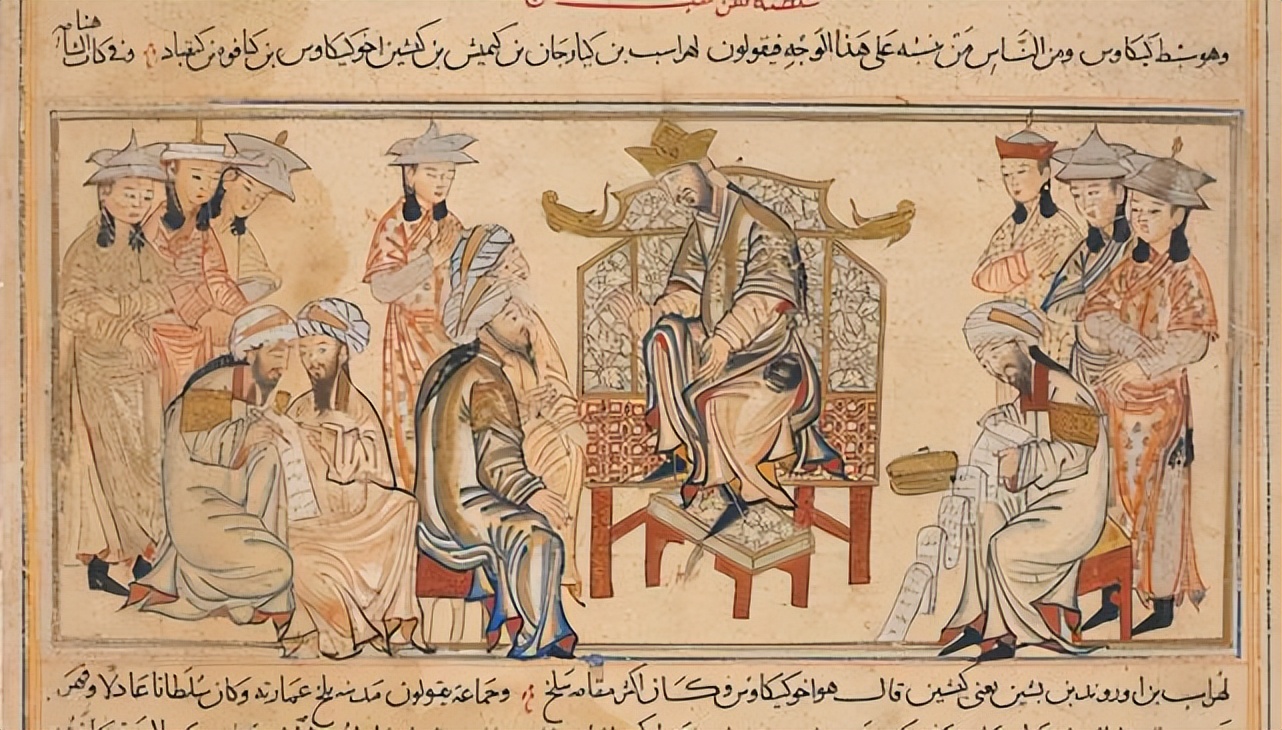 وهو سبط كيكاوس ومن الناس من نسبه على هذا الوجه فيقولون لهراسب بن كيارجان بن كيميش بن كشين اخو كيكاوس بن كيافوه بن كيقباد وفى كتاب الشاهنامه
لهراسب بن اوروند بن بشين يعنى كشين قال هو اخو كيكاوس وكان اكثر مقامه ببلخ وجماعة يقولون مدينة بلخ عمارته وكان سلطانا عادلا وقهر